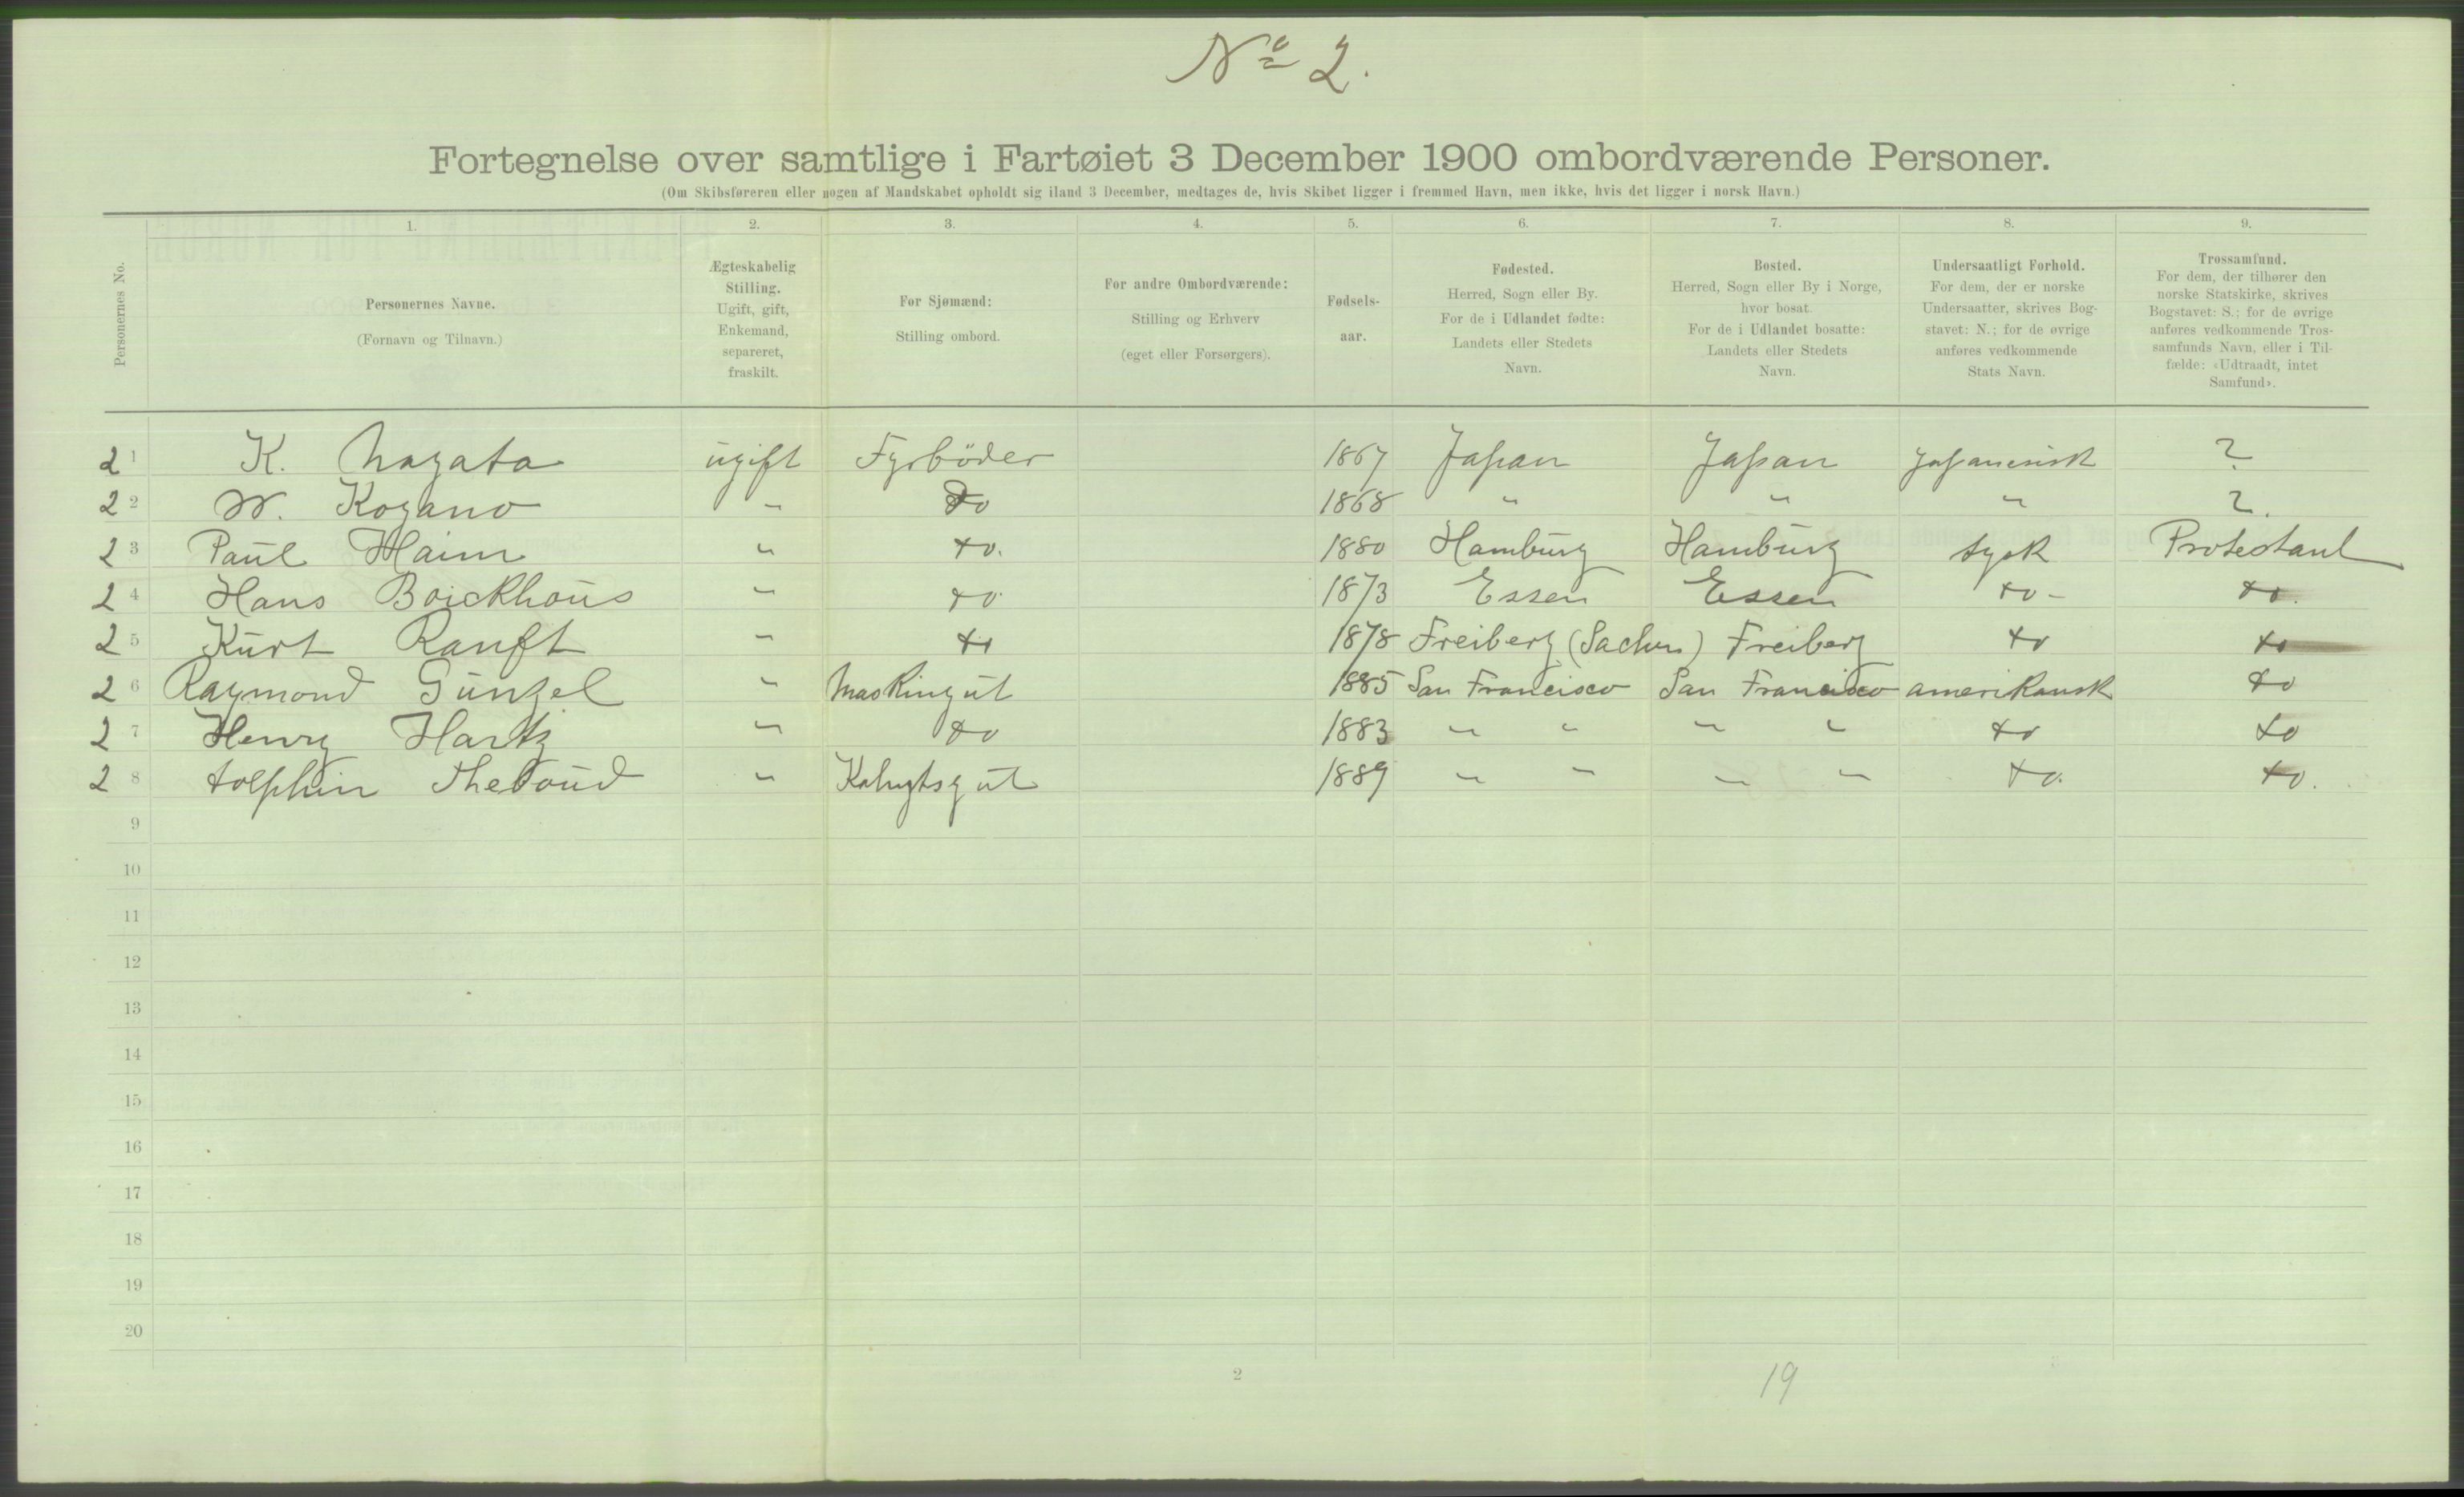 No 2.
Fortegnelse over samtlige i Fartøiet 3 December 1900 ombordværende Personer.
(Om Skibsføreren eller nogen af Mandskabet opholdt sig iland 3 December, medtages de, hvis Skibet ligger i fremmed Havn, men ikke, hvis det ligger i norsk Havn.)
Personernes No.
1.
Personernes Navne.
(Fornavn og Tilnavn.)
2.
Ægteskabelig
Stilling.
Ugift, gift,
Enkemand,
separeret,
fraskilt.
3.
For Sjømænd:
Stilling ombord.
4.
For andre Ombordværende:
Stilling og Erhverv
(eget eller Forsørgers).
5.
Fødsels-
aar.
6.
Fødested.
Herred, Sogn eller By.
For de i Udlandet fødte:
Landets eller Stedets
Navn.
7.
Bosted.
Herred, Sogn eller By i Norge,
hvor bosat.
For de i Udlandet bosatte:
Landets eller Stedets
Navn.
8.
Undersaatligt Forhold.
For dem, der er norske
Undersaatter, skrives Bog-
stavet: N.; for de øvrige
anføres vedkommende
Stats Navn.
9.
Trossamfund.
For dem, der tilhører den
norske Statskirke, skrives
Bogstavet: S.; for de øvrige
anføres vedkommende Tros-
samfunds Navn, eller i Til-
fælde: «Udtraadt, intet
Samfund».
2 1 K. Nagata ugift Fyrböder 1867 Japan Japan japanesisk ?
2 2 W. Kogano " do 1868 " " " ?
2 3 Paul Haim " do. 1880 Hamburg Hamburg tysk Protestant
2 4 Hans Boickhous " do 1873 Essen Essen do - do.
2 5 Kurt Ranft " do 1878 Freiberg (Sachsen) Freiberg do do
2 6 Raymond Günzel " Maskingut 1885 San Francisco San Francisco amerikansk do
2 7 Henry Hartz " do 1883 " " " " do do
2 8 dolphin Thebaud " Kahytsgut 1889 " " " " do. do.
9
10
11
12
13
14
15
16
17
18
19
20
2
19